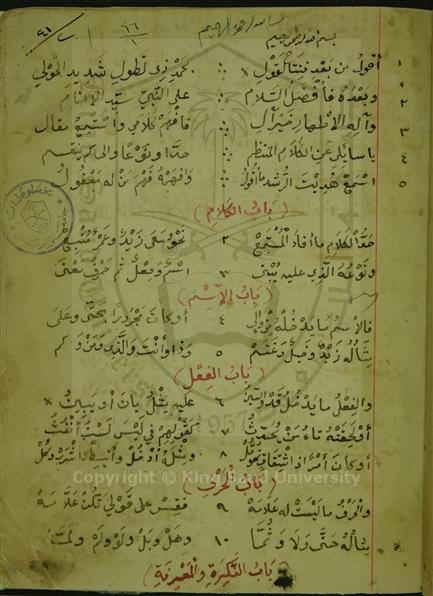 بسم الله الرحمن الرحيم
بسم الله الرحمن الرحيم
١ أقول من بعد افتتاح القول بحمد ذي الطول شديد الحول
٢ وبعده فأفضل السلام على النبي سيد الأنام
٣ وآله الأطهار خير آل فافهم كلامي واستمع مقال
٤ يا سائلي عن الكلام المنتظم حدا ونوعا وإلى كم ينقسم
٥ اسمع هديت الرشد ما أقول وافهمه فهم من له معقول
(باب الكلام)
حد الكلام ما أفاد المستمع ٢ نحو سعى زيد وعمرو متبع
ونوعه الذي عليه يبنى ٣ اسم وفعل ثم حرف معنى
(باب الاسم)
فالاسم ما يدخله من وإلى ٤ أو كان مجرورا بحتى وعلى
مثاله زيد وخيل وغنم ٥ وذا وأنت والذي ومن وكم
(باب الفعل)
والفعل ما يدخل قد والسين ٦ عليه مثل بان أو يبين
أو لحقته تاء من يحدث ٧ كقولهم في ليس لست أنفث
أو كان أمرا ذا اشتقاق نحو قل ٨ ومثله ادخل وانبسط واشرب وكل
(باب الحرف)
والحرف ما ليست له علامة ٩ فقس على قولي تكن علامة
مثاله حتى ولا وثما ١٠ وهل وبل ولو ولم ولما
(باب النكرة والمعرفة)
Copyright © King Saud University